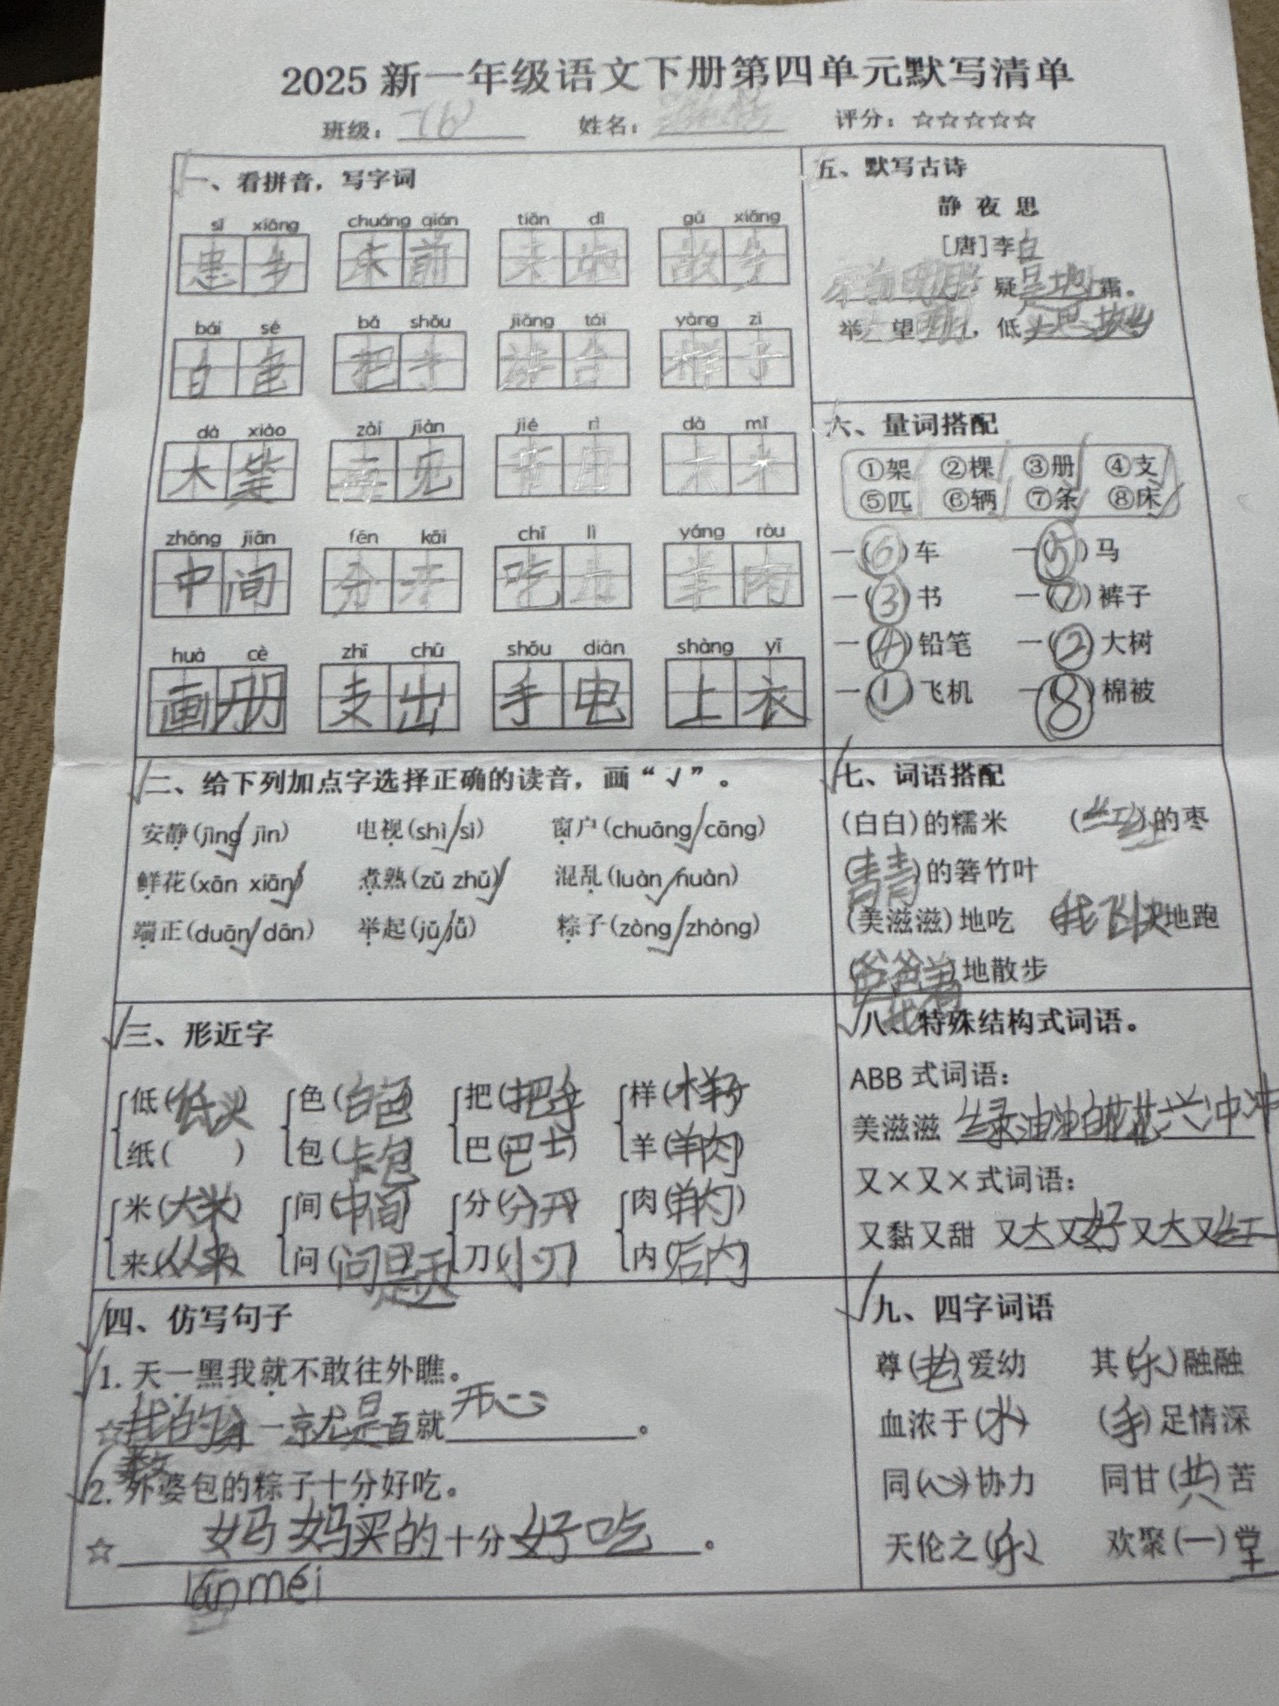 2025新一年级语文下册第四单元默写清单
班级： 姓名： 评分：☆☆☆☆☆
一、看拼音，写字词
sī xiāng chuáng qián tiān dì gù xiāng
思乡 床前
bái sè bǎ shǒu jiǎng tái yàng zi
白色 把手 讲台 样子
dà xiào zài jiàn jié rì dà mǐ
大笑 再见 节日 大米
zhōng jiān fēn kāi chī lì yáng ròu
中间 分开 吃力 羊肉
huà cè zhī chū shǒu diàn shàng yī
画册 支出 手电 上衣
二、给下列加点字选择正确的读音，画“√”。
安静(jìng√ jìn) 电视(shì√ sì) 窗户(chuāng√ cāng)
鲜花(xān xiān√) 煮熟(zǔ zhǔ√) 混乱(luàn√ nuàn)
端正(duān√ dān) 举起(jǔ√ jǚ) 粽子(zòng√ zhòng)
三、形近字
低(低头) 色(白色) 把(把手) 样(样子)
纸( ) 包(卡包) 巴(巴士) 羊(羊肉)
米(大米) 间(中间) 分(分开) 肉(羊肉)
来(从来) 问(问题) 刀(小刀) 内(后内)
四、仿写句子
1. 天一黑我就不敢往外瞧。
☆我的 一 就是百就开心。
数
2. 外婆包的粽子十分好吃。
☆妈妈买的十分好吃。
méi
五、默写古诗
静夜思
[唐]李白
疑是地上霜。
举 望明月，低头思故乡
六、量词搭配
①架 ②棵 ③册 ④支
⑤匹 ⑥辆 ⑦条 ⑧床
一(⑥)车 一(⑤)马
一(③)书 一(⑦)裤子
一(④)铅笔 一(②)大树
一(①)飞机 一(⑧)棉被
七、词语搭配
(白白)的糯米 (红红)的枣
(青青)的箬竹叶
(美滋滋)地吃 (我飞快)地跑
地散步
八、特殊结构式词语。
ABB 式词语：
美滋滋 绿油油 白花花 兴冲冲
又×又×式词语：
又黏又甜 又大又好 又大又红
九、四字词语
尊(老)爱幼 其(乐)融融
血浓于(水) (手)足情深
同(心)协力 同甘(共)苦
天伦之(乐) 欢聚(一)堂